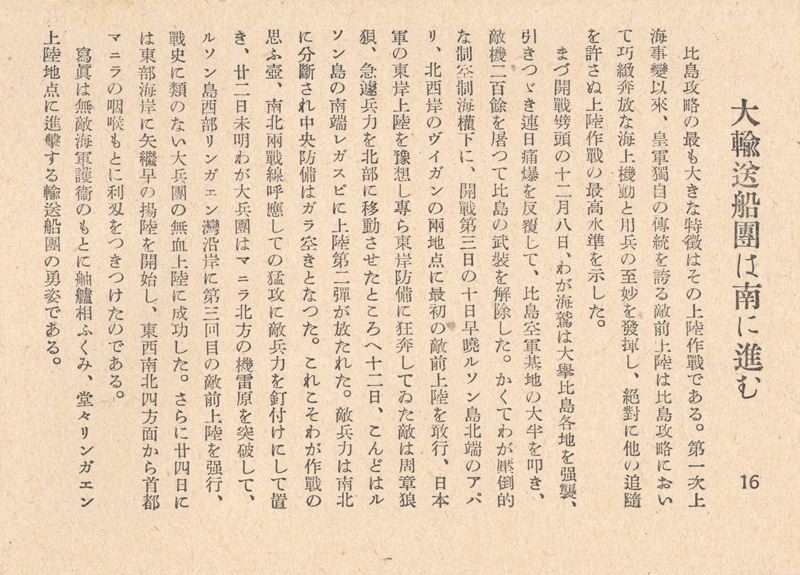 大輸送船團は南に進む
16
比島攻略の最も大きな特徴はその上陸作戰である。第一次上
海事變以來、皇軍獨自の傳統を誇る敵前上陸は比島攻略におい
て巧緻奔放な海上機動と用兵の至妙を發揮し、絕對に他の追隨
を許さぬ上陸作戰の最高水準を示した。
まづ開戰劈頭の十二月八日、わが海鷲は大擧比島各地を强襲、
引きつゞき連日痛爆を反覆して、比島空軍基地の大半を叩き、
敵機二百餘を屠つて比島の武裝を解除した。かくてわが壓倒的
な制空制海權下に、開戰第三日の十日早曉ルソン島北端のアパ
リ、北西岸のヴイガンの兩地點に最初の敵前上陸を敢行、日本
軍の東岸上陸を豫想し專ら東岸防備に狂奔してゐた敵は周章狼
狽、急遽兵力を北部に移動させたところへ十二日、こんどはル
ソン島の南端レガスピに上陸第二彈が放たれた。敵兵力は南北
に分斷され中央防備はガラ空きとなつた。これこそわが作戰の
思ふ壺、南北兩戰線呼應しての猛攻に敵兵力を釘付けにして置
き、廿二日未明わが大兵團はマニラ北方の機雷原を突破して、
ルソン島西部リンガエン灣沿岸に第三回目の敵前上陸を强行、
戰史に類のない大兵團の無血上陸に成功した。さらに廿四日に
は東部海岸に矢繼早の揚陸を開始し、東西南北四方面から首都
マニラの咽喉もとに利刄をつきつけたのである。
寫眞は無敵海軍護衞のもとに舳艫相ふくみ、堂々リンガエン
上陸地点に進擊する輸送船團の勇姿である。